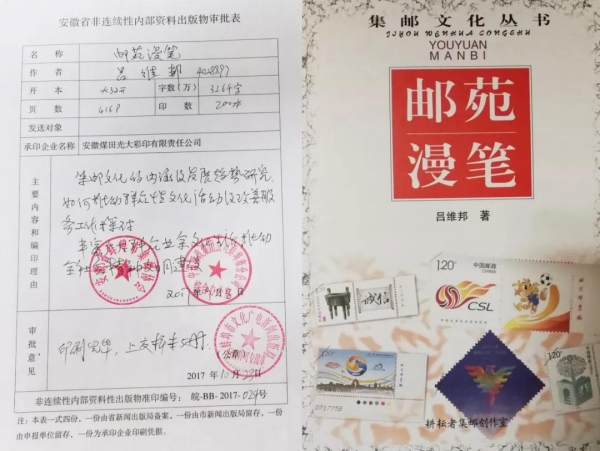 安徽省非连续性内部资料出版物审批表
名称 邮苑漫笔
作者 吕维邦
开本 大32开 字数(万)
页数 416P 印数 200本
发送对象
承印企业名称 安徽煤田光大彩印有限责任公司
主要内容和编印理由
集邮文化的内涵及发展趋势研究
如何推动群众性文化活动及改善服
务工作探讨
审批意见
印刷完毕,上交样本2册.
(公章)
2017年10月
非连续性内部资料性出版物准印编号: 皖-BB-2017-024号
注:本表一式四份,一份由省新闻出版局备案,一份由市新闻出版局留存,一份
由申报单位留存,一份为承印企业印刷凭据。
集邮文化丛书
JIYOU WENHUA CONGSHU
YOUYUAN
MANBI
邮苑
漫笔
吕维邦 著
120
中国邮政
CHINA
CSL
诚信
1.20
120
耕耘者集邮创作室